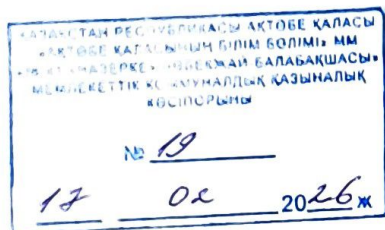 ҚАЗАҚСТАН РЕСПУБЛИКАСЫ АҚТӨБЕ ҚАЛАСЫ
«АҚТӨБЕ ҚАЛАСЫНЫҢ БІЛІМ БӨЛІМІ» ММ
«НАЗЕРКЕ» БӨБЕКЖАЙ БАЛАБАҚШАСЫ»
МЕМЛЕКЕТТІК КОММУНАЛДЫҚ ҚАЗЫНАЛЫҚ
КӘСІПОРЫНЫ
№ 19
17 02 2026 ж